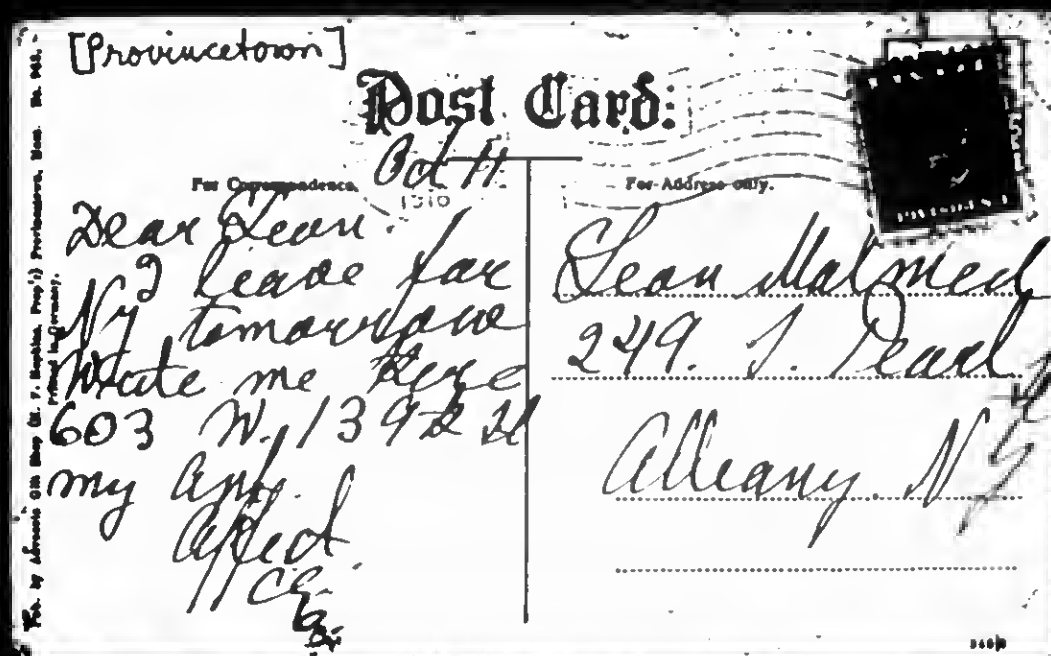 [Provincetown]
Post Card:
Oct 11
1910
For Correspondence.
For Address only.
Dear Leon.
I leave for
NY tomorrow
Write me there
603 W. 139th St
my apt.
Affect
EG
Leon Malmed
249. S. Pearl St
Albany. NY
Pub. by Advocate Gift Shop Provincetown, Mass.
Printed in Germany.